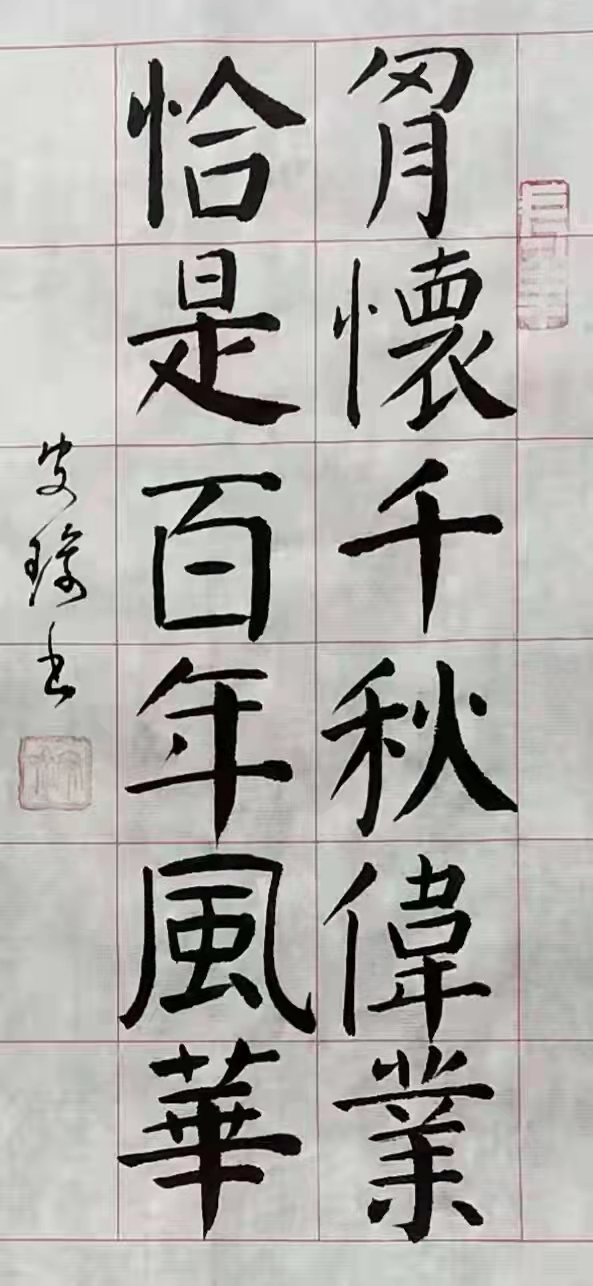 胷懷千秋偉業
恰是百年風華
书